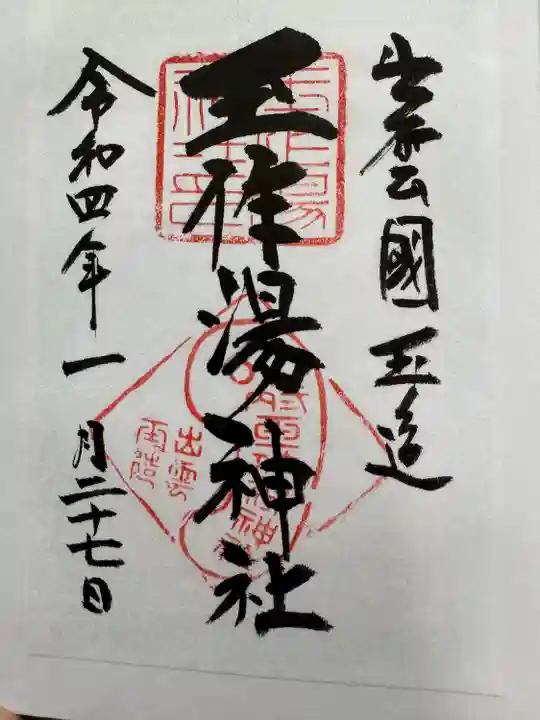 出雲國玉造
玉作湯神社
令和四年一月二十七日
出雲